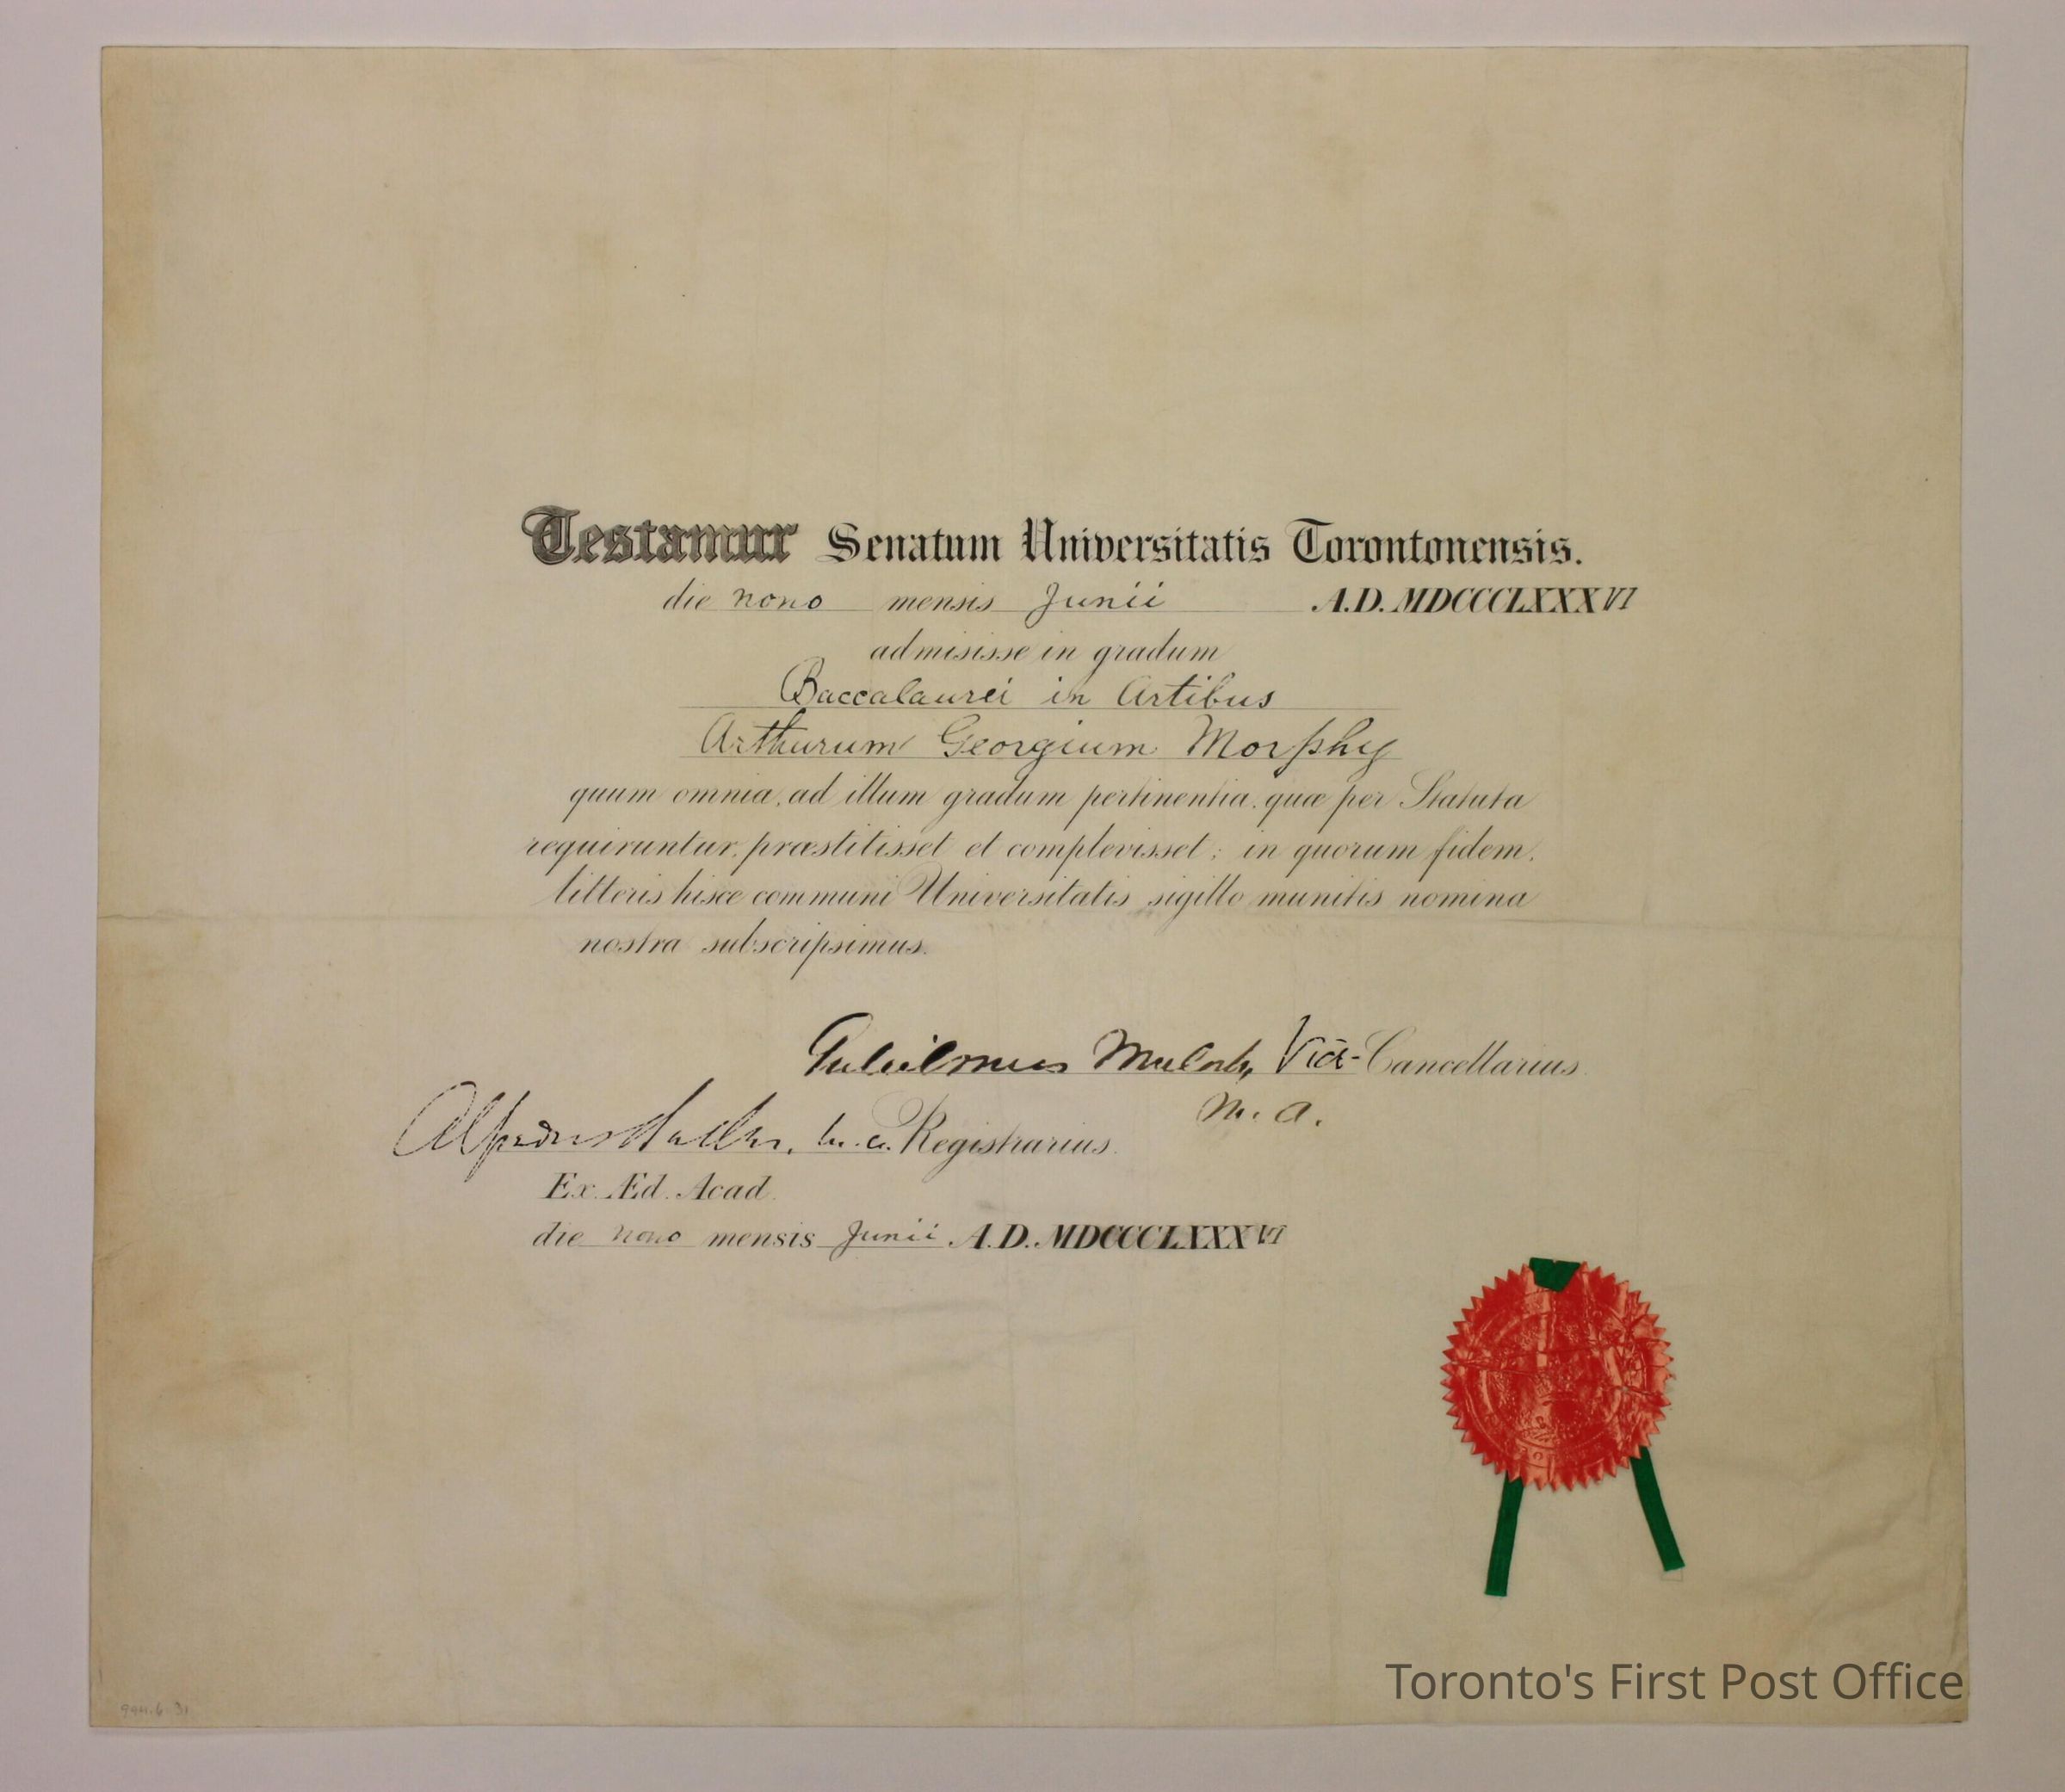 Testamur Senatum Universitatis Torontonensis.
die nono mensis Junii A.D. MDCCCLXXXVI
admisisse in gradum
Baccalaurei in Artibus
Arthurum Georgium Morphy
quum omnia, ad illum gradum pertinentia, quæ per Statuta
requiruntur, præstitisset et complevisset; in quorum fidem,
litteris hisce communi Universitatis sigillo munitis nomina
nostra subscripsimus.
Gulielmus Mulock, Vice-Cancellarius
M.A.
Alfredus Baker, M.A. Registrarius.
Ex. Æd. Acad.
die nono mensis Junii A.D. MDCCCLXXXVI
Toronto's First Post Office